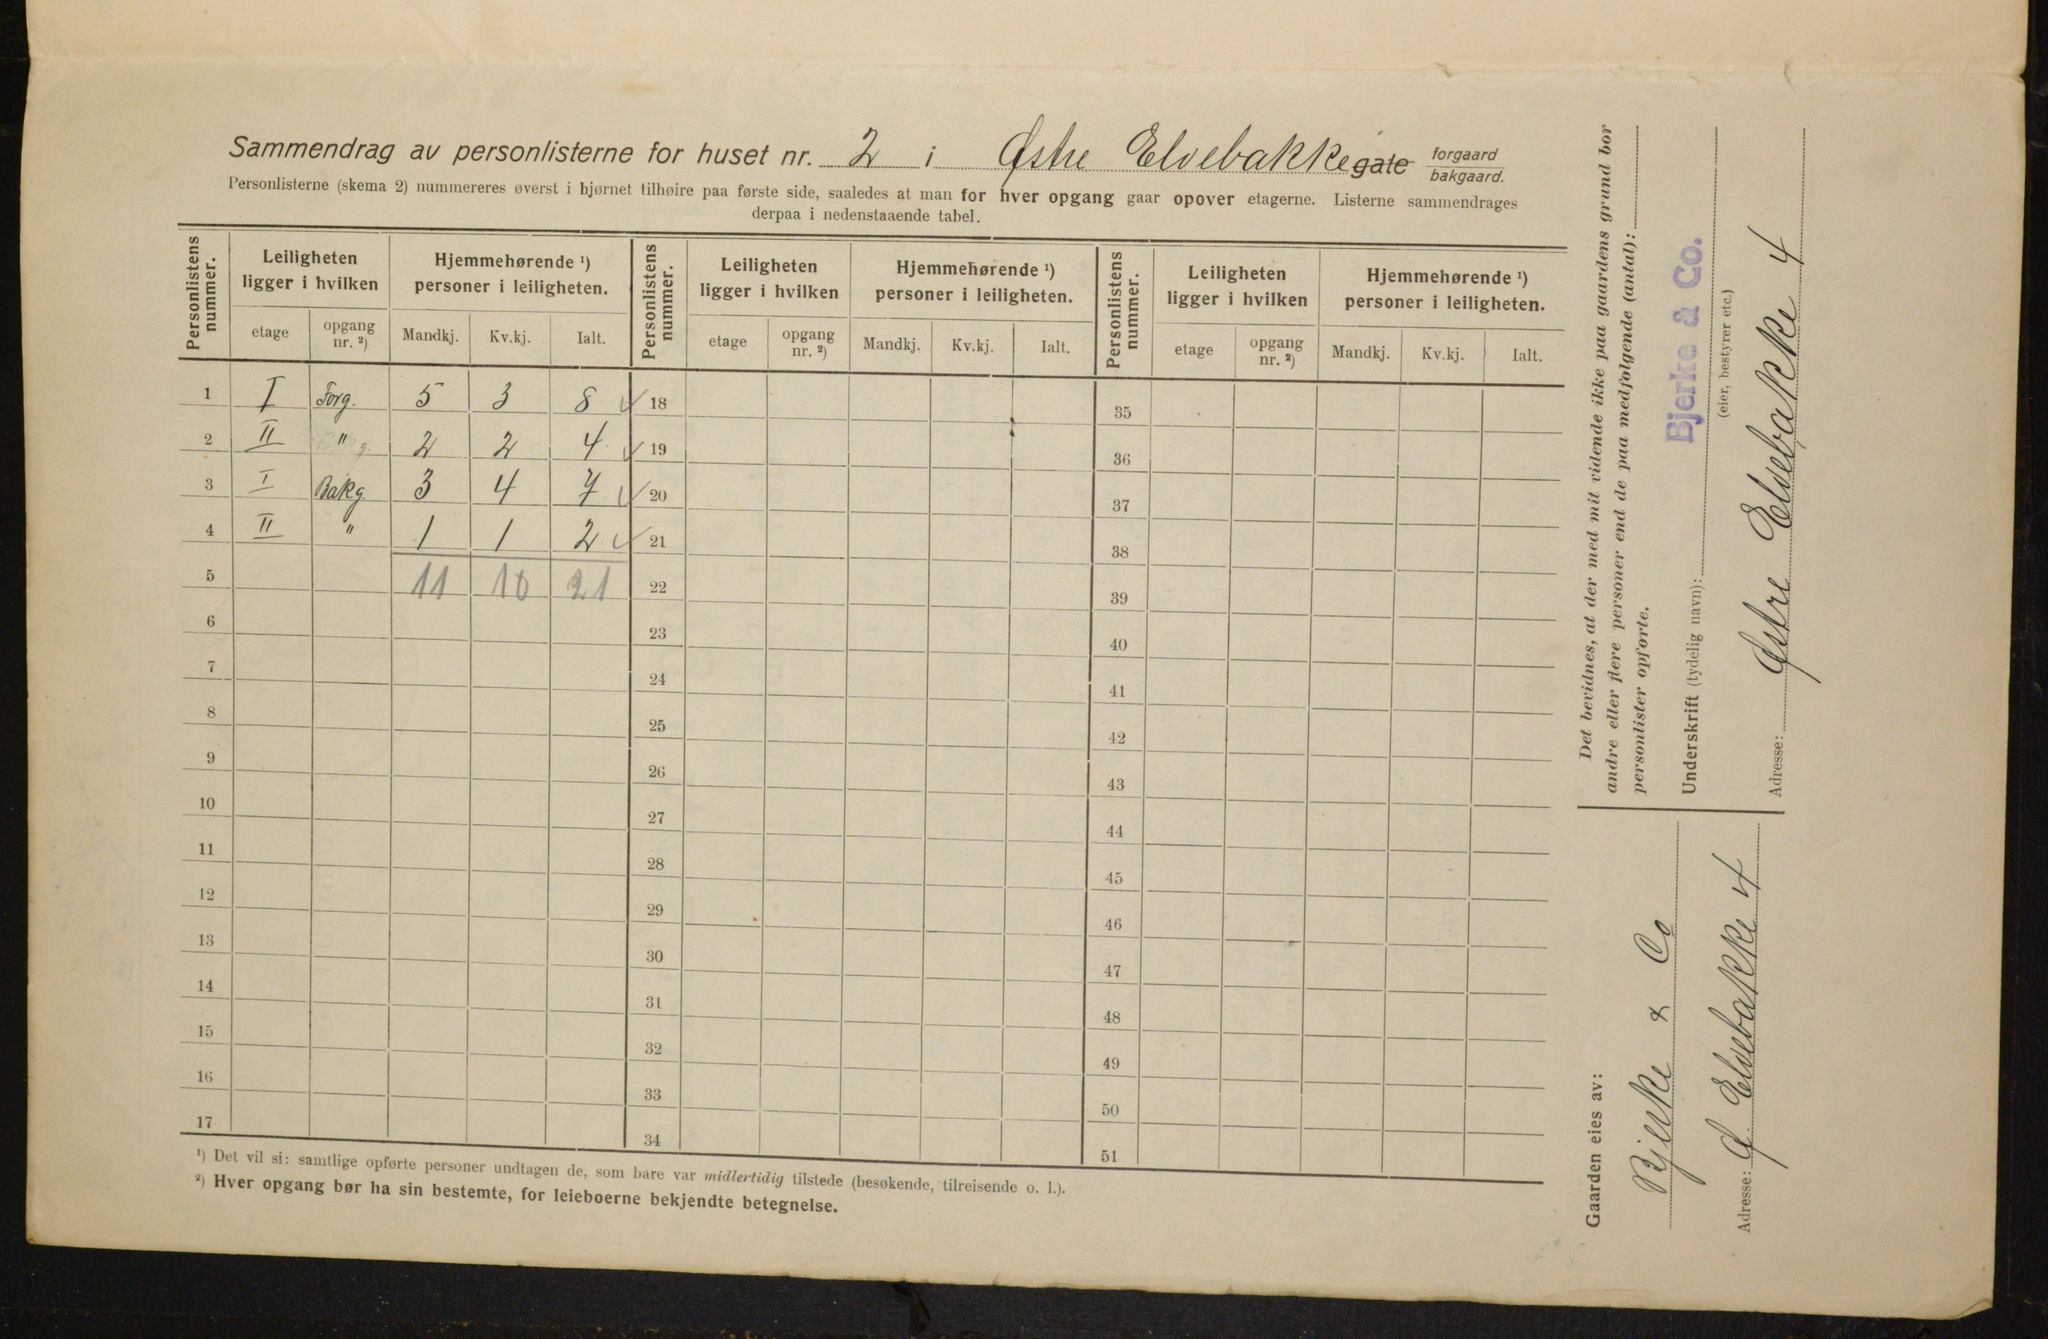 Sammendrag av personlisterne for huset nr. 2 i Østre Elvebakke gate forgaard bakgaard.
Personlisterne (skema 2) nummereres øverst i hjørnet tilhøire paa første side, saaledes at man for hver opgang gaar opover etagerne. Listerne sammendrages
derpaa i nedenstaaende tabel.
Personlistens nummer. Leiligheten ligger i hvilken Hjemmehørende ¹) personer i leiligheten. Personlistens nummer. Leiligheten ligger i hvilken Hjemmehørende ¹) personer i leiligheten. Personlistens nummer. Leiligheten ligger i hvilken Hjemmehørende ¹) personer i leiligheten.
etage opgang nr. ²) Mandkj. Kv.kj. Ialt. etage opgang nr. ²) Mandkj. Kv.kj. Ialt. etage opgang nr. ²) Mandkj. Kv.kj. Ialt.
1 I Forg. 5 3 8 ✓ 18 35
2 II " 2 2 4 ✓ 19 36
3 I Bakg. 3 4 7 ✓ 20 37
4 II " 1 1 2 ✓ 21 38
5 11 10 21 22 39
6 23 40
7 24 41
8 25 42
9 26 43
10 27 44
11 28 45
12 29 46
13 30 47
14 31 48
15 32 49
16 33 50
17 34 51
¹) Det vil si: samtlige opførte personer undtagen de, som bare var midlertidig tilstede (besøkende, tilreisende o. l.).
²) Hver opgang bør ha sin bestemte, for leieboerne bekjendte betegnelse.
Det bevidnes, at der med mit vidende ikke paa gaardens grund bor
andre eller flere personer end de paa medfølgende (antal):
personlister opførte.
Underskrift (tydelig navn): Bjerke & Co.
(eier, bestyrer etc.)
Adresse: Østre Elvebakke 4
Gaarden eies av:
Bjerke & Co
Adresse: Ø. Elvebakke 4